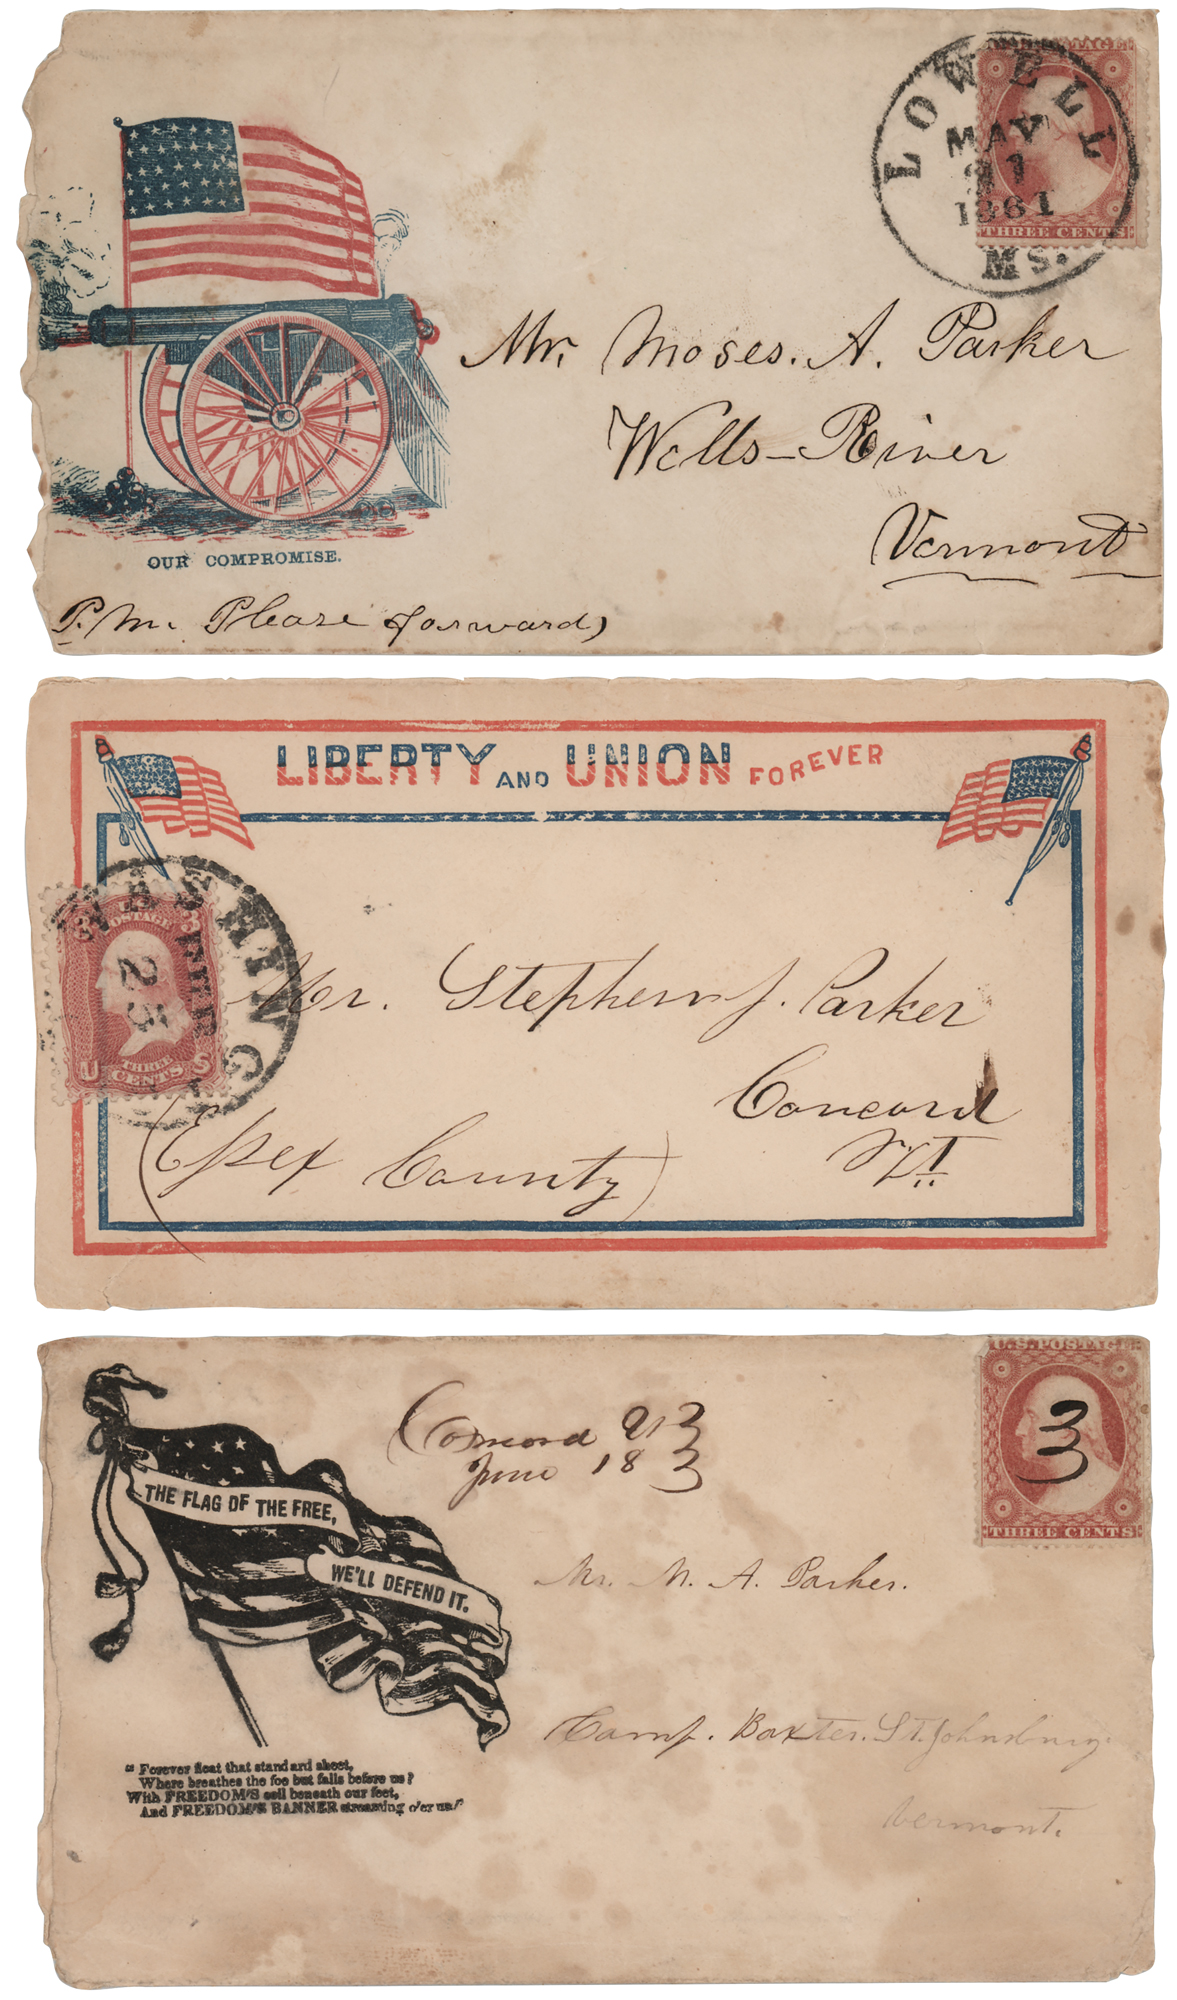 U.S. POSTAGE
LOWELL
MAY
31
1861
MS.
THREE CENTS
OUR COMPROMISE.
Mr. Moses. A. Parker
Wells-River
Vermont
P.M. Please forward,
LIBERTY AND UNION FOREVER
WASHING
FEB
25
3 U.S. 3
POSTAGE
U THREE S
CENTS
Mr. Stephen J. Parker
Concord
Vt.
(Essex County)
U.S. POSTAGE
3
THREE CENTS
Concord
June 18
THE FLAG OF THE FREE,
WE'LL DEFEND IT.
Mr. M. A. Parker.
Camp. Baxter. St. Johnsbury.
Vermont.
" Forever float that standard sheet,
Where breathes the foe but falls before us?
With FREEDOM'S soil beneath our feet,
And FREEDOM'S BANNER streaming o'er us!"